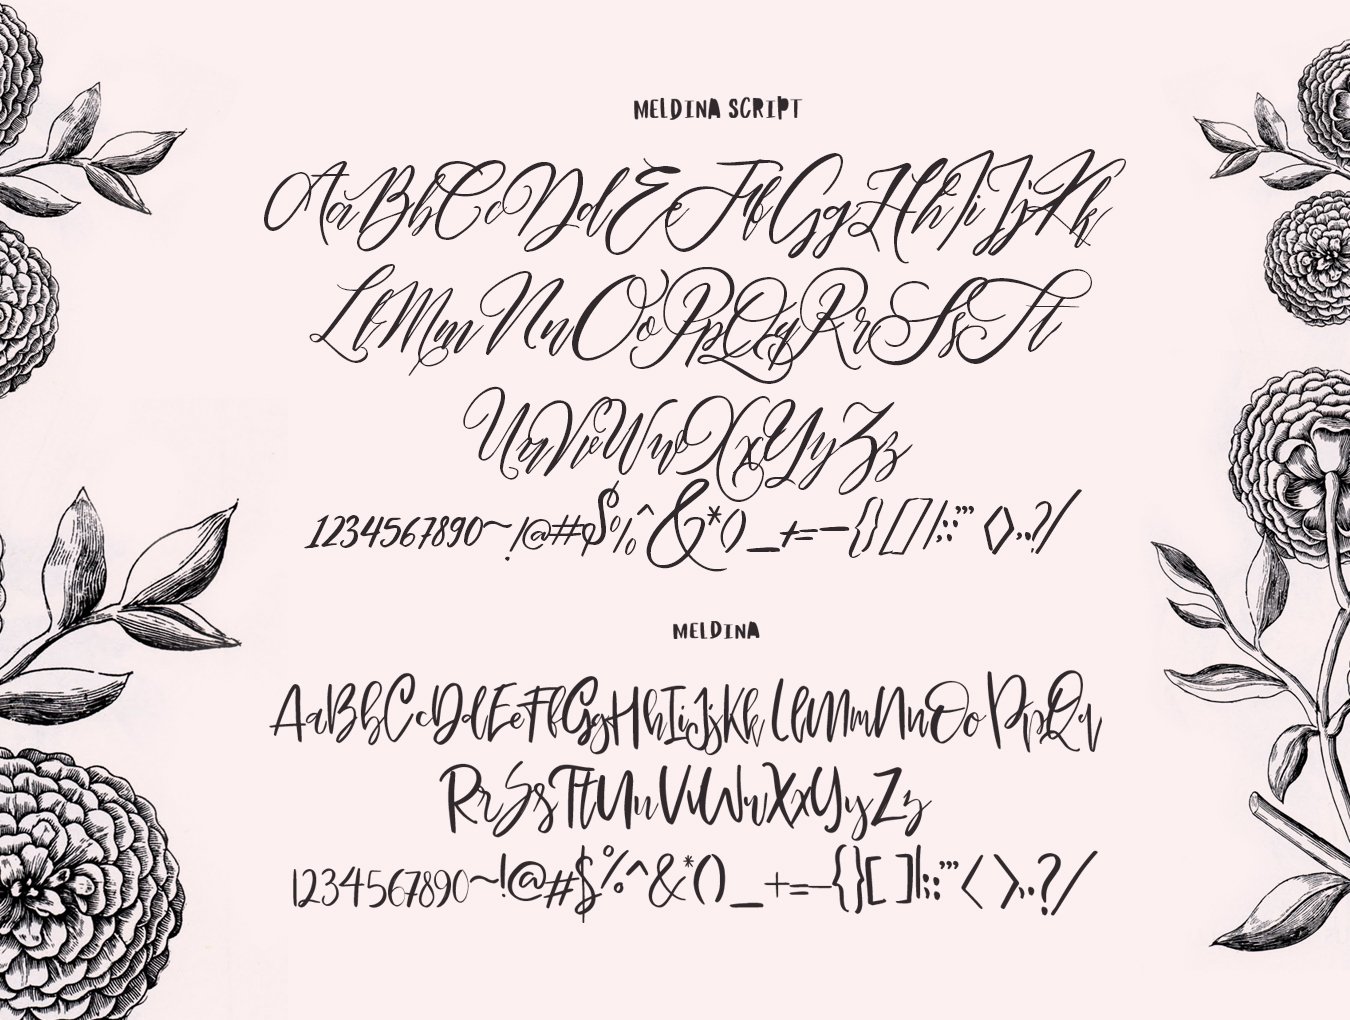 MELDINA SCRIPT
AaBbCcDdEeFfGgHhIiJjKk
LlMmNnOoPpQqRrSsTt
UuVvWwXxYyZz
1234567890~!@#$%^&*()_+=-{}[]|:;"'<>,.?/
MELDINA
AaBbCcDdEeFfGgHhIiJjKkLlMmNnOoPpQq
RrSsTtUuVvWwXxYyZz
1234567890~!@#$%^&*()_+=-{}[]|:;"'<>,.?/